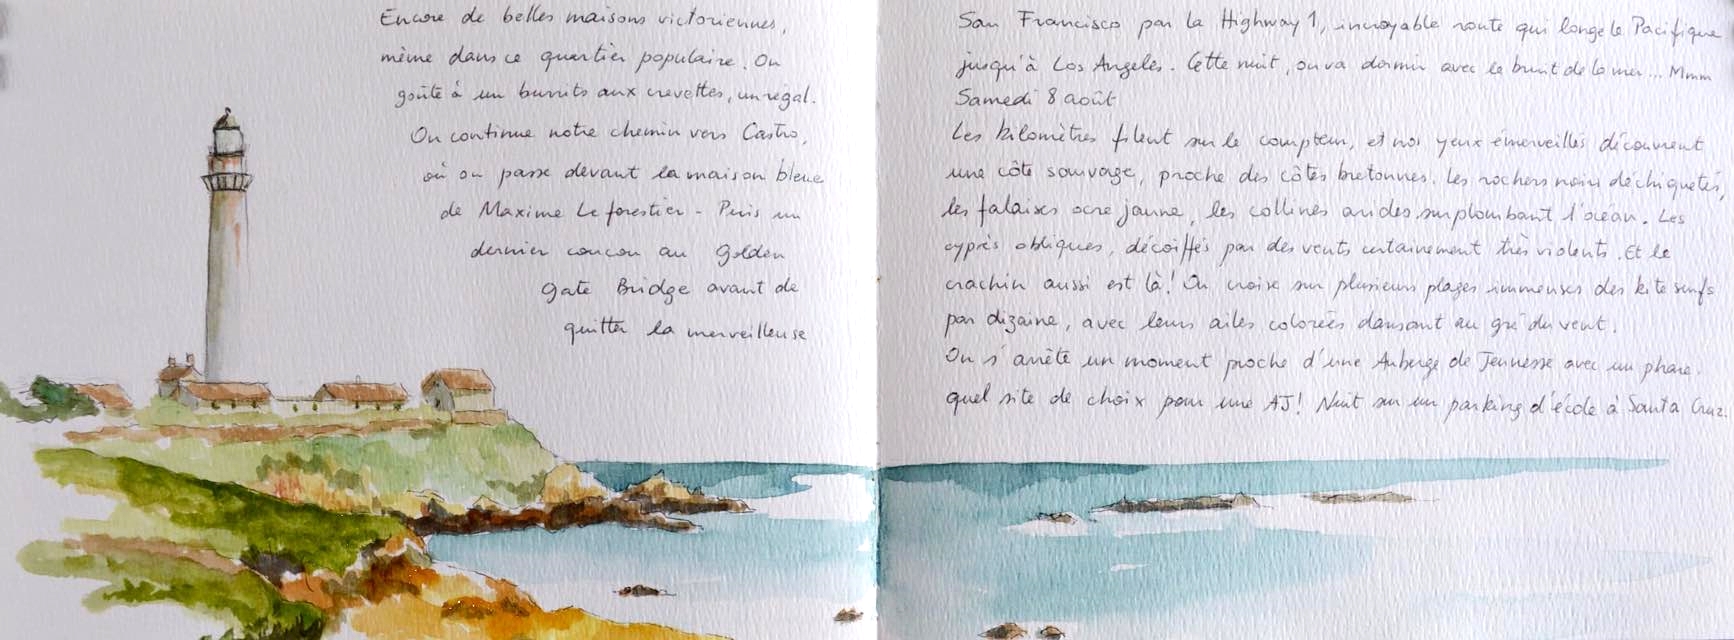 Encore de belles maisons victoriennes,
même dans ce quartier populaire. On
goûte à un burrito aux crevettes, un régal.
On continue notre chemin vers Castro,
où on passe devant la maison bleue
de Maxime Le forestier - Puis un
dernier coucou au golden
gate Bridge avant de
quitter la merveilleuse
San Francisco par la Highway 1, incroyable route qui longe le Pacifique
jusqu'à Los Angeles. Cette nuit, on va dormir avec le bruit de la mer... Mmm
Samedi 8 août
Les kilomètres filent sur le compteur, et nos yeux émerveillés découvrent
une côte sauvage, proche des côtes bretonnes. Les rochers noirs déchiquetés,
les falaises ocre jaune, les collines arides surplombant l'océan. Les
cyprès obliques, décoiffés par des vents certainement très violents. Et le
crachin aussi est là! On croise sur plusieurs plages immenses des kite surfs
par dizaine, avec leurs ailes colorées dansant au gré du vent.
On s'arrête un moment proche d'une Auberge de Jeunesse avec un phare.
quel site de choix pour une AJ! Nuit sur un parking d'école à Santa Cruz.